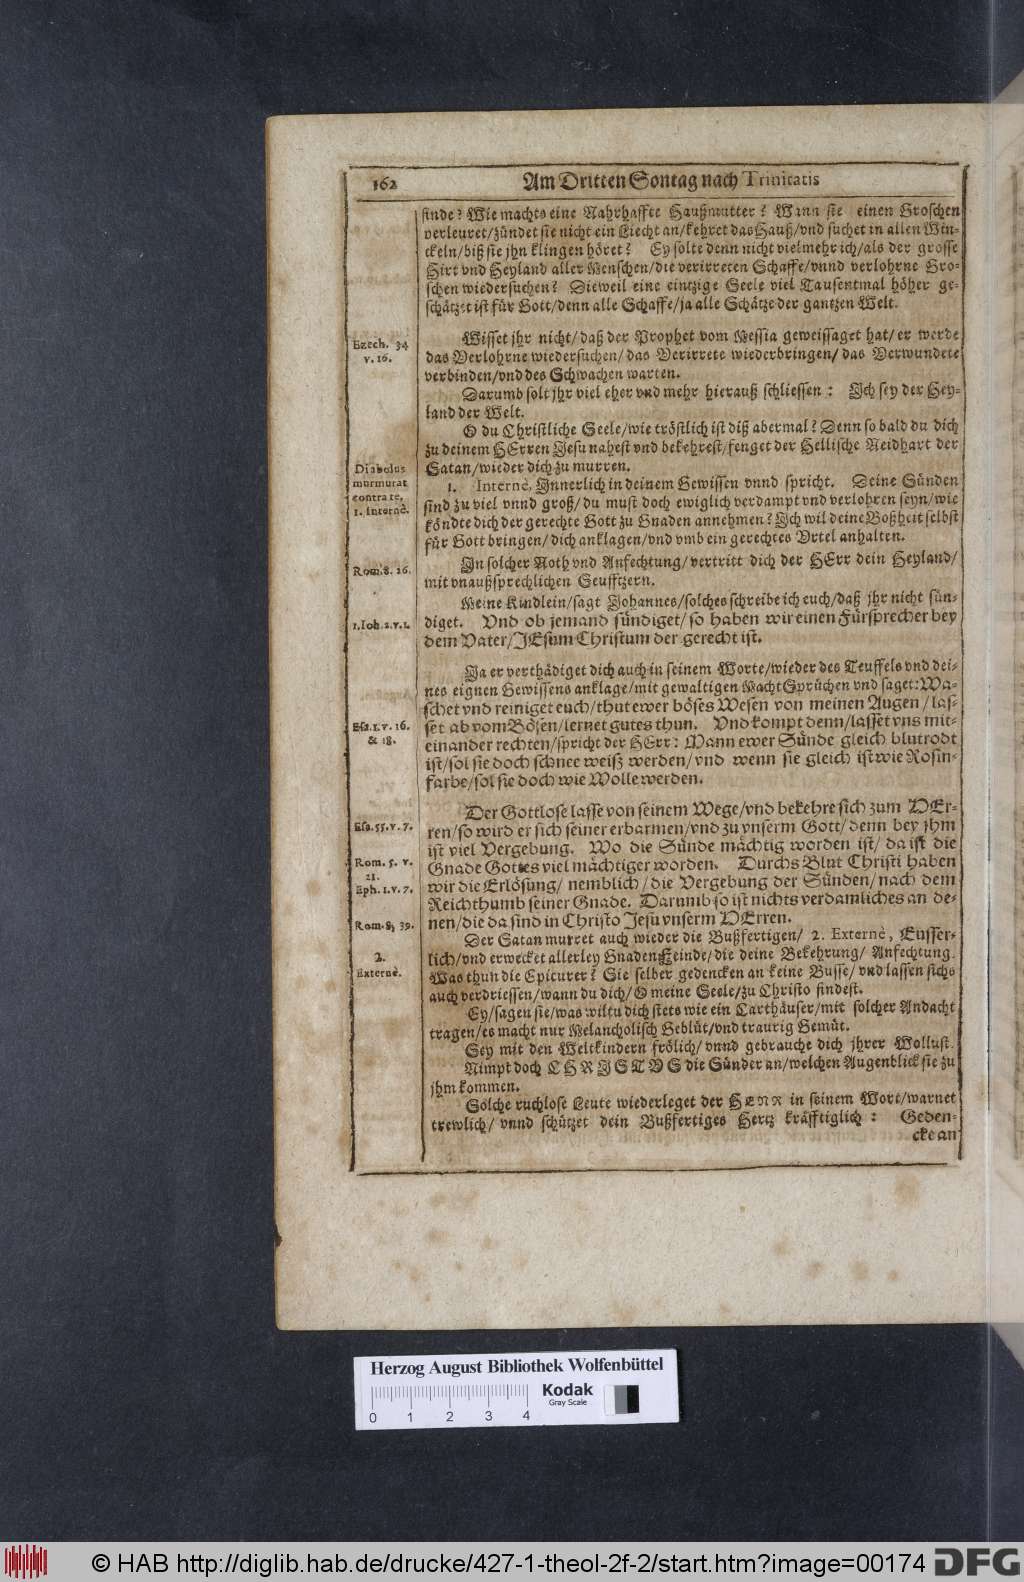 162
Am Dritten Sontag nach Trinitatis
finde? Wie machts eine Nahrhaffte Haußmutter? Wann sie einen Groschen
verleuret/zündet sie nicht ein Liecht an/kehret das Hauß/vnd suchet in allen Win-
ckeln/biß sie jhn klingen höret? Ey solte denn nicht vielmehr ich/als der grosse
Hirt vnd Heyland aller Menschen/die verirreten Schaffe/vnnd verlohrne Gro-
schen wiedersuchen? Dieweil eine eintzige Seele viel Tausentmal höher ge-
schätzet ist für Gott/denn alle Schaffe/ja alle Schätze der gantzen Welt.
Ezech. 34
v. 16.
Wisset jhr nicht/daß der Prophet vom Messia geweissaget hat/er werde
das Verlohrne wiedersuchen/das Verirrete wiederbringen/das Verwundete
verbinden/vnd des Schwachen warten.
Darumb solt jhr viel eher vnd mehr hierauß schliessen: Ich sey der Hey-
land der Welt.
O du Christliche Seele/wie tröstlich ist diß abermal? Denn so bald du dich
zu deinem HErren Jesu nahest vnd bekehrest/fenget der Hellische Neidhart der
Satan/wieder dich zu murren.
Diabolus
murmurat
contra te,
1. internè.
1. Internè, Innerlich in deinem Gewissen vnnd spricht. Deine Sünden
sind zu viel vnnd groß/du must doch ewiglich verdampt vnd verlohren seyn/wie
köndte dich der gerechte Gott zu Gnaden annehmen? Ich wil deine Boßheit selbst
für Gott bringen/dich anklagen/vnd vmb ein gerechtes Vrtel anhalten.
Rom. 8. 26.
In solcher Noth vnd Anfechtung/vertritt dich der HErr dein Heyland/
mit vnaußsprechlichen Seufftzern.
1. Ioh. 2. v. 1.
Meine Kindlein/sagt Johannes/solches schreibe ich euch/daß jhr nicht sün-
diget. Vnd ob jemand sündiget/so haben wir einen Fürsprecher bey
dem Vater/JEsum Christum der gerecht ist.
Ja er verthädiget dich auch in seinem Worte/wieder des Teuffels vnd dei-
nes eignen Gewissens anklage/mit gewaltigen Macht Sprüchen vnd saget: Wa-
schet vnd reiniget euch/thut ewer böses Wesen von meinen Augen/las-
set ab vom Bösen/lernet gutes thun. Vnd kompt denn/lasset vns mit-
einander rechten/spricht der HErr: Wann ewer Sünde gleich blutrodt
ist/sol sie doch schnee weiß werden/vnd wenn sie gleich ist wie Rosin-
farbe/sol sie doch wie Wolle werden.
Esa. 1. v. 16.
& 18.
Esa. 55. v. 7.
Der Gottlose lasse von seinem Wege/vnd bekehre sich zum HEr-
ren/so wird er sich seiner erbarmen/vnd zu vnserm Gott/denn bey jhm
ist viel Vergebung. Wo die Sünde mächtig worden ist/da ist die
Gnade Gottes viel mächtiger worden. Durchs Blut Christi haben
wir die Erlösung/nemblich/die Vergebung der Sünden/nach dem
Reichthumb seiner Gnade. Darumb so ist nichts verdamliches an de-
nen/die da sind in Christo Jesu vnserm HErren.
Rom. 5. v.
21.
Eph. 1. v. 7.
Rom. 8, 39.
2.
Externè.
Der Satan murret auch wieder die Bußfertigen/ 2. Externè, Eusser-
lich/vnd erwecket allerley Gnaden Feinde/die deine Bekehrung/ Anfechtung.
Was thun die Epicurer? Sie selber gedencken an keine Busse/vnd lassen sichs
auch verdriessen/wann du dich/O meine Seele/zu Christo findest.
Ey/sagen sie/was wiltu dich stets wie ein Carthäuser/mit solcher Andacht
tragen/es macht nur Melancholisch Geblüt/vnd traurig Gemüt.
Sey mit den Weltkindern frölich/vnnd gebrauche dich jhrer Wollust.
Nimpt doch CHRISTVS die Sünder an/welchen Augenblick sie zu
jhm kommen.
Solche ruchlose Leute wiederleget der HERR in seinem Wort/warnet
trewlich/vnnd schützet dein Bußfertiges Hertz kräfftiglich: Geden-
cke an
Herzog August Bibliothek Wolfenbüttel
Kodak
Gray Scale
0 1 2 3 4
© HAB http://diglib.hab.de/drucke/427-1-theol-2f-2/start.htm?image=00174
DFG